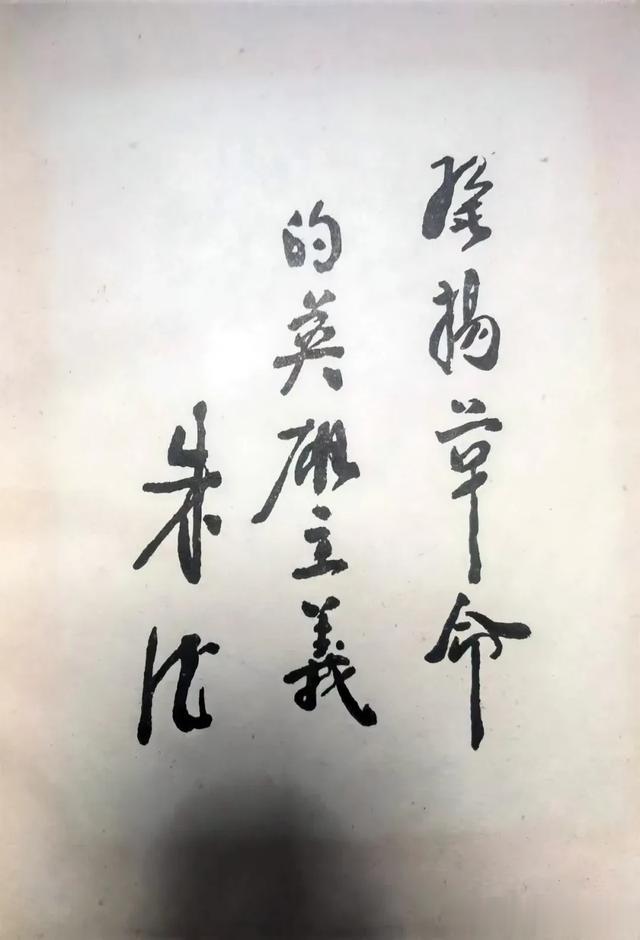 發揚革命
的英雄主義
朱德